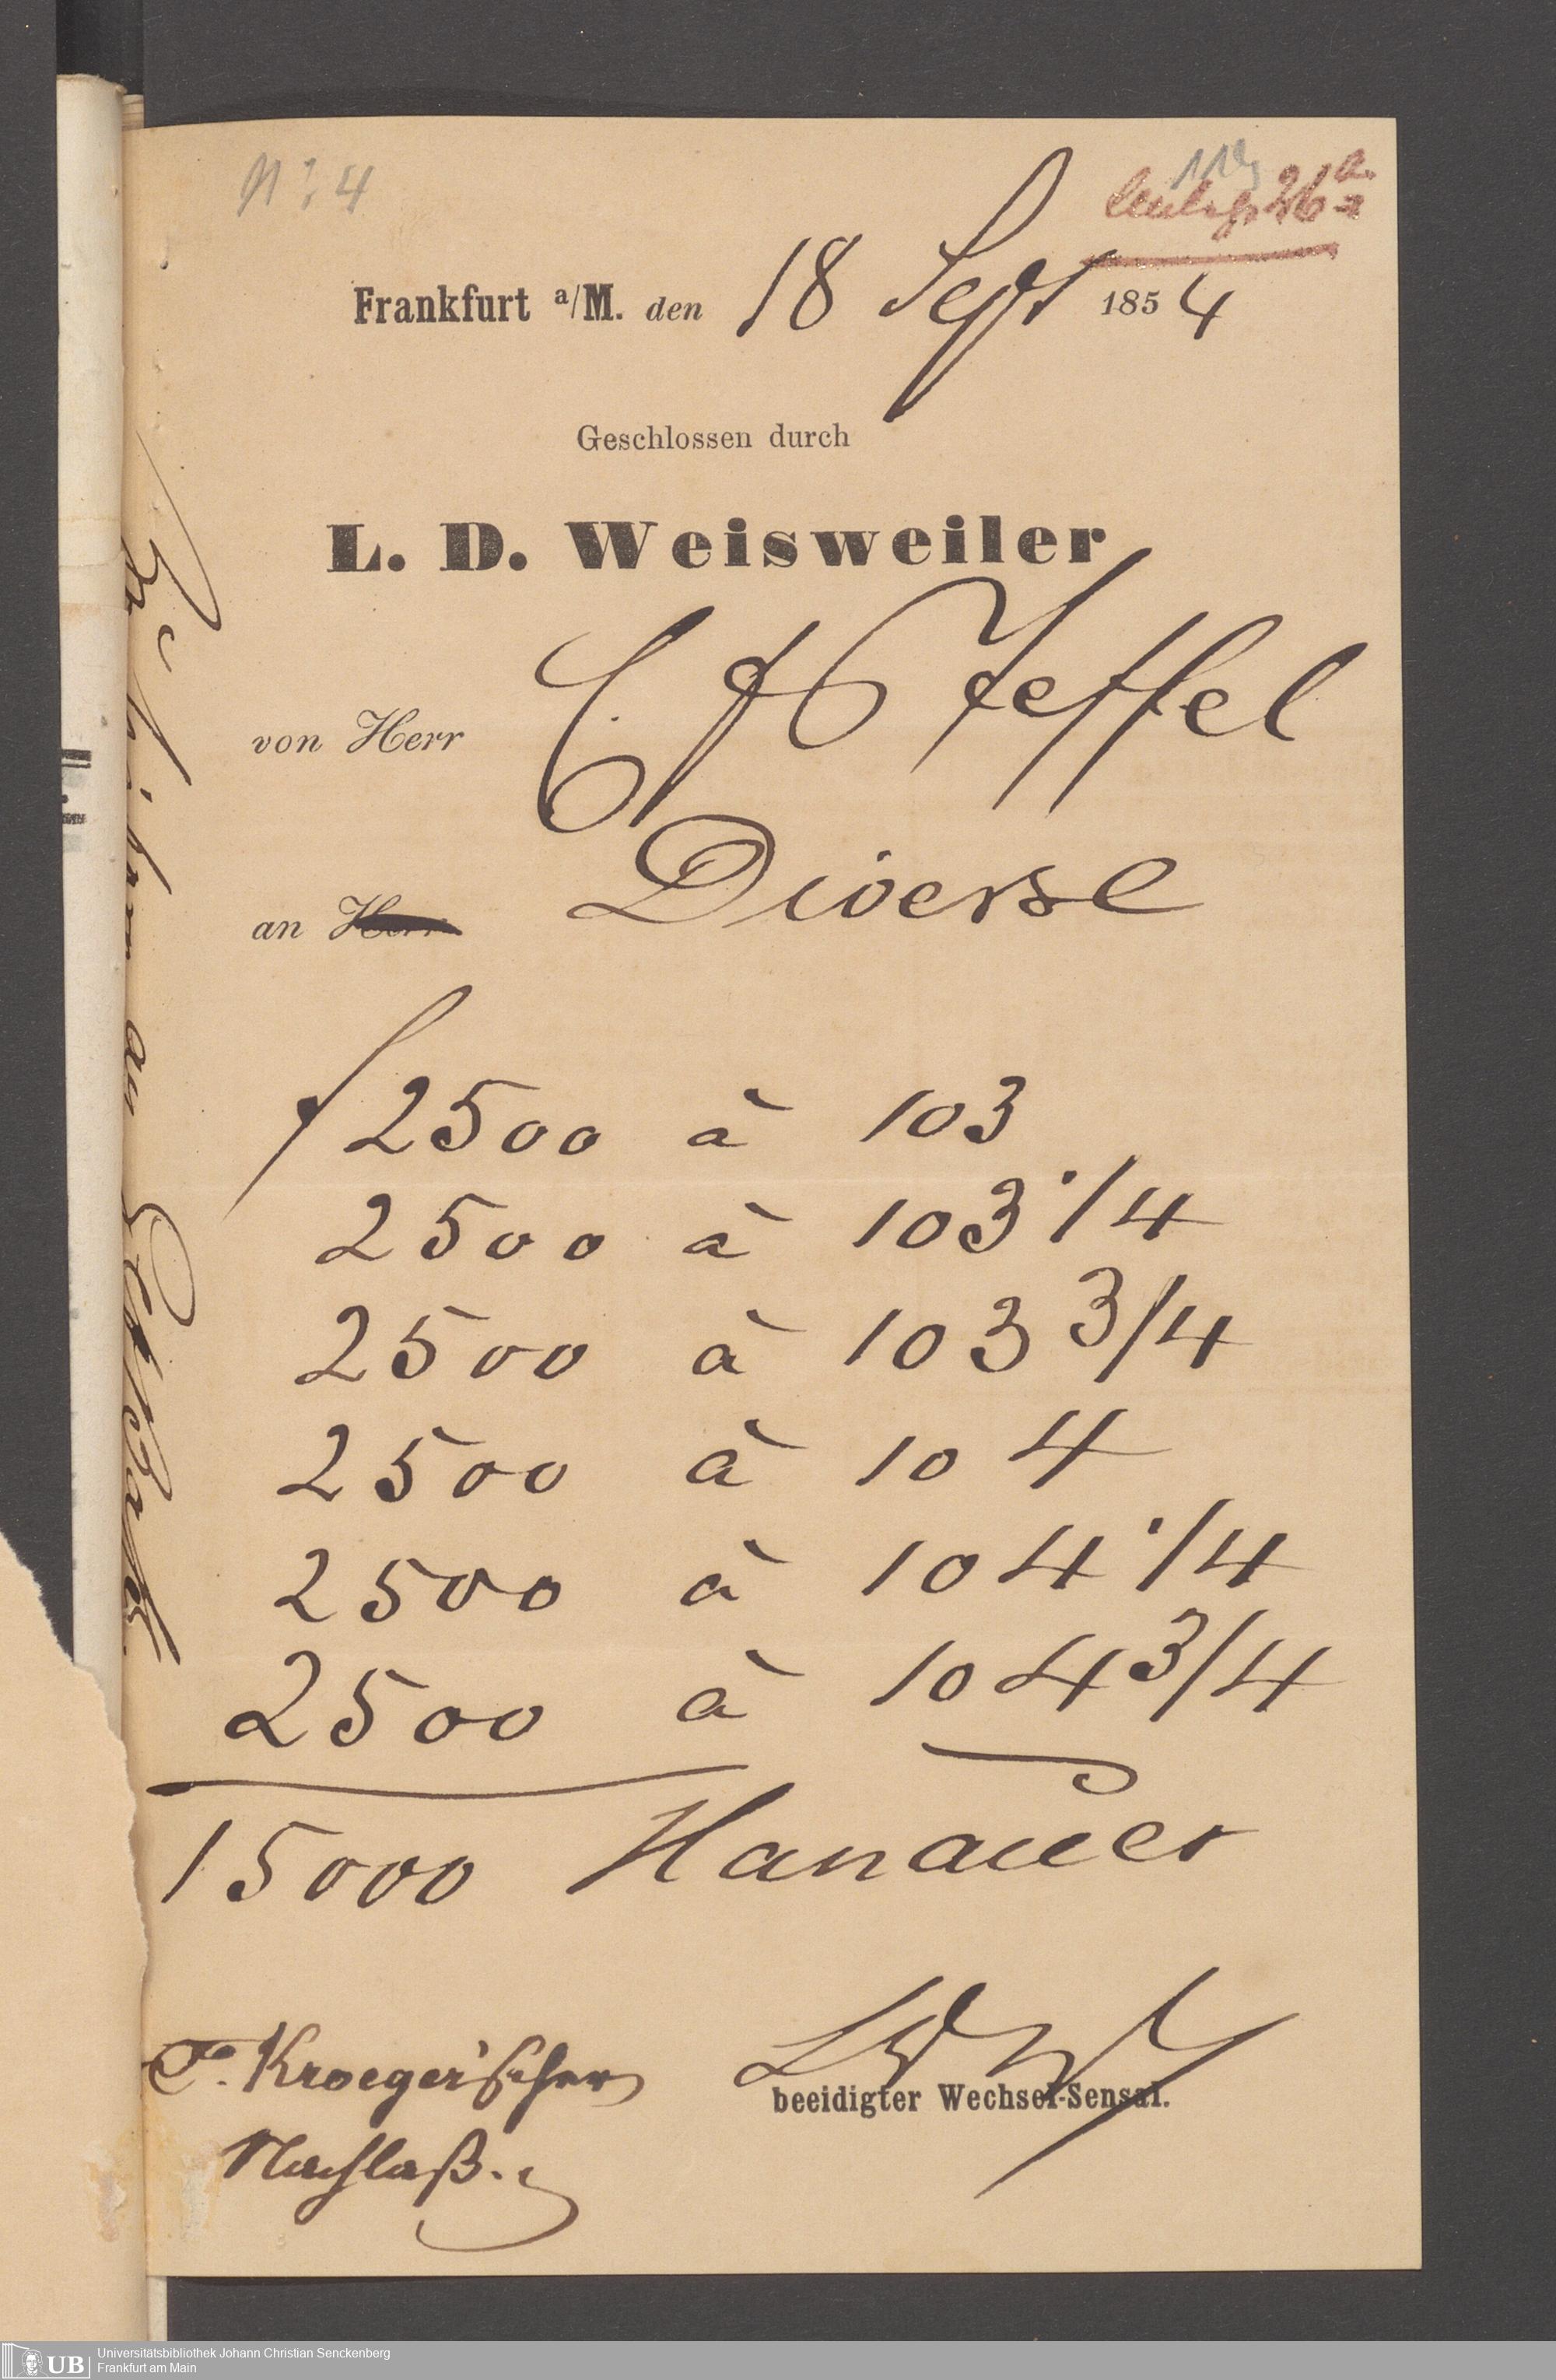 No. 4
26
Frankfurt a/M. den 18 Sept 1854
Geschlossen durch
L. D. Weisweiler
von Herr C. Jeffel
an Herr Diverse
f 2500 à 103
2500 à 103 1/4
2500 à 103 3/4
2500 à 104
2500 à 104 1/4
2500 à 104 3/4
15000 Hanauer
Kroeger'schen
Nachlaß.
beeidigter Wechsel-Sensal.
UB Universitätsbibliothek Johann Christian Senckenberg
Frankfurt am Main